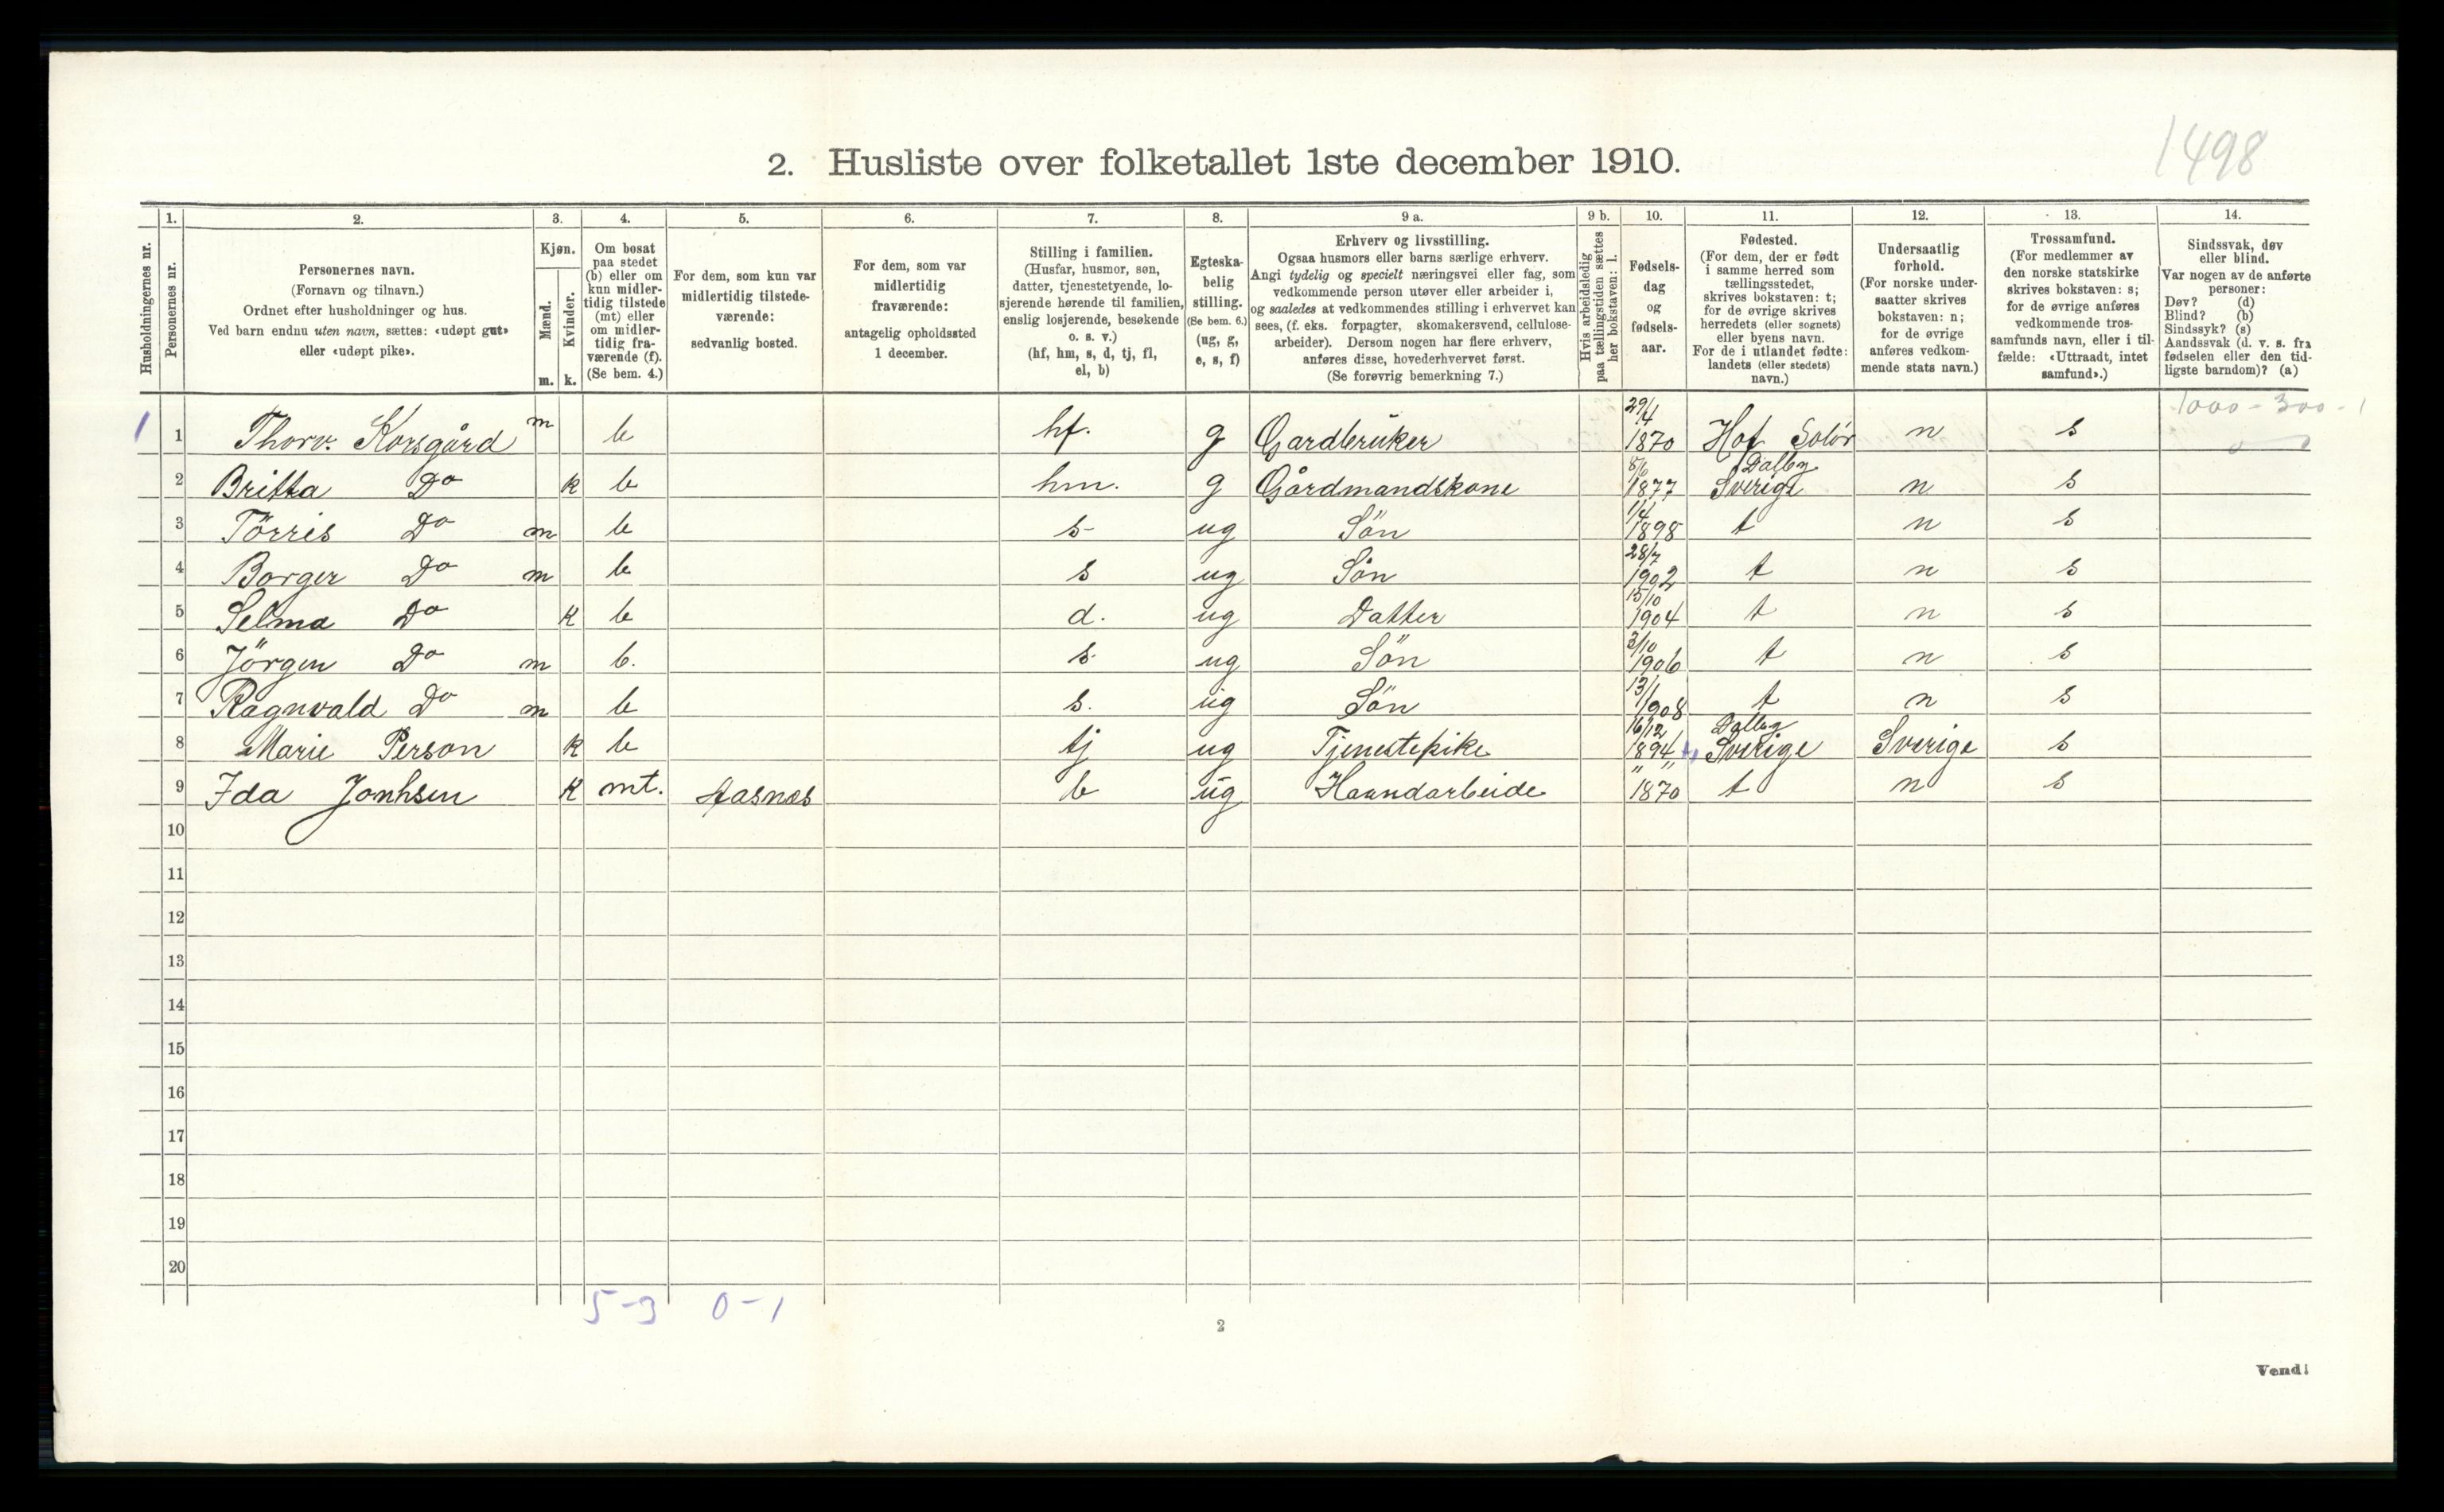 1498
2. Husliste over folketallet 1ste december 1910.
Husholdningernes nr.
1.
Personernes nr.
2.
Personernes navn.
(Fornavn og tilnavn.)
Ordnet efter husholdninger og hus.
Ved barn endnu uten navn, sættes: «udøpt gut»
eller «udøpt pike».
3.
Kjøn.
Mænd.
m.
Kvinder.
k.
4.
Om bosat
paa stedet
(b) eller om
kun midler-
tidig tilstede
(mt) eller
om midler-
tidig fra-
værende (f).
(Se bem. 4.)
5.
For dem, som kun var
midlertidig tilstede-
værende:
sedvanlig bosted.
6.
For dem, som var
midlertidig
fraværende:
antagelig opholdssted
1 december.
7.
Stilling i familien.
(Husfar, husmor, søn,
datter, tjenestetyende, lo-
sjerende hørende til familien,
enslig losjerende, besøkende
o. s. v.)
(hf, hm, s, d, tj, fl,
el, b)
8.
Egteska-
belig
stilling.
(Se bem. 6.)
(ug, g,
e, s, f)
9 a.
Erhverv og livsstilling.
Ogsaa husmors eller barns særlige erhverv.
Angi tydelig og specielt næringsvei eller fag, som
vedkommende person utøver eller arbeider i,
og saaledes at vedkommendes stilling i erhvervet kan
sees, (f. eks. forpagter, skomakersvend, cellulose-
arbeider). Dersom nogen har flere erhverv,
anføres disse, hovederhvervet først.
(Se forøvrig bemerkning 7.)
9 b.
Hvis arbeidsledig
paa tællingstiden sættes
her bokstaven: l.
10.
Fødsels-
dag
og
fødsels-
aar.
11.
Fødested.
(For dem, der er født
i samme herred som
tællingsstedet,
skrives bokstaven: t;
for de øvrige skrives
herredets (eller sognets)
eller byens navn.
For de i utlandet fødte:
landets (eller stedets)
navn.)
12.
Undersaatlig
forhold.
(For norske under-
saatter skrives
bokstaven: n;
for de øvrige
anføres vedkom-
mende stats navn.)
13.
Trossamfund.
(For medlemmer av
den norske statskirke
skrives bokstaven: s;
for de øvrige anføres
vedkommende tros-
samfunds navn, eller i til-
fælde: «Uttraadt, intet
samfund».)
14.
Sindssvak, døv
eller blind.
Var nogen av de anførte
personer:
Døv? (d)
Blind? (b)
Sindssyk? (s)
Aandssvak (d. v. s. fra
fødselen eller den tid-
ligste barndom)? (a)
1000 - 300 - 1
1 1 Thorv. Korsgård m b hf. g Gardbrüker 29/4 1870 Hof Solör n s
2 Britta Do k b hm. g Gårdmandskone 8/6 1877 Dalby Sverige n s
3 Törris Do m b s- ug Sön 1/4 1898 t n s
4 Borger Do m b s ug Sön 28/7 1902 t n s
5 Selma Do k b d. ug Datter 15/10 1904 t n s
6 Jörgen Do m b. s. ug Sön 3/10 1906 t n s
7 Ragnvald Do m b s. ug Sön 13/1 1908 t n s
8 Marie Person k b tj ug Tjenestepike 16/12 1894 Dalby Sverige Sverige s
9 Ida Jonhsen k mt. Aasnes b ug Haandarbeide " " 1870 t n s
10
11
12
13
14
15
16
17
18
19
20
5-3 0-1
2
Vend!